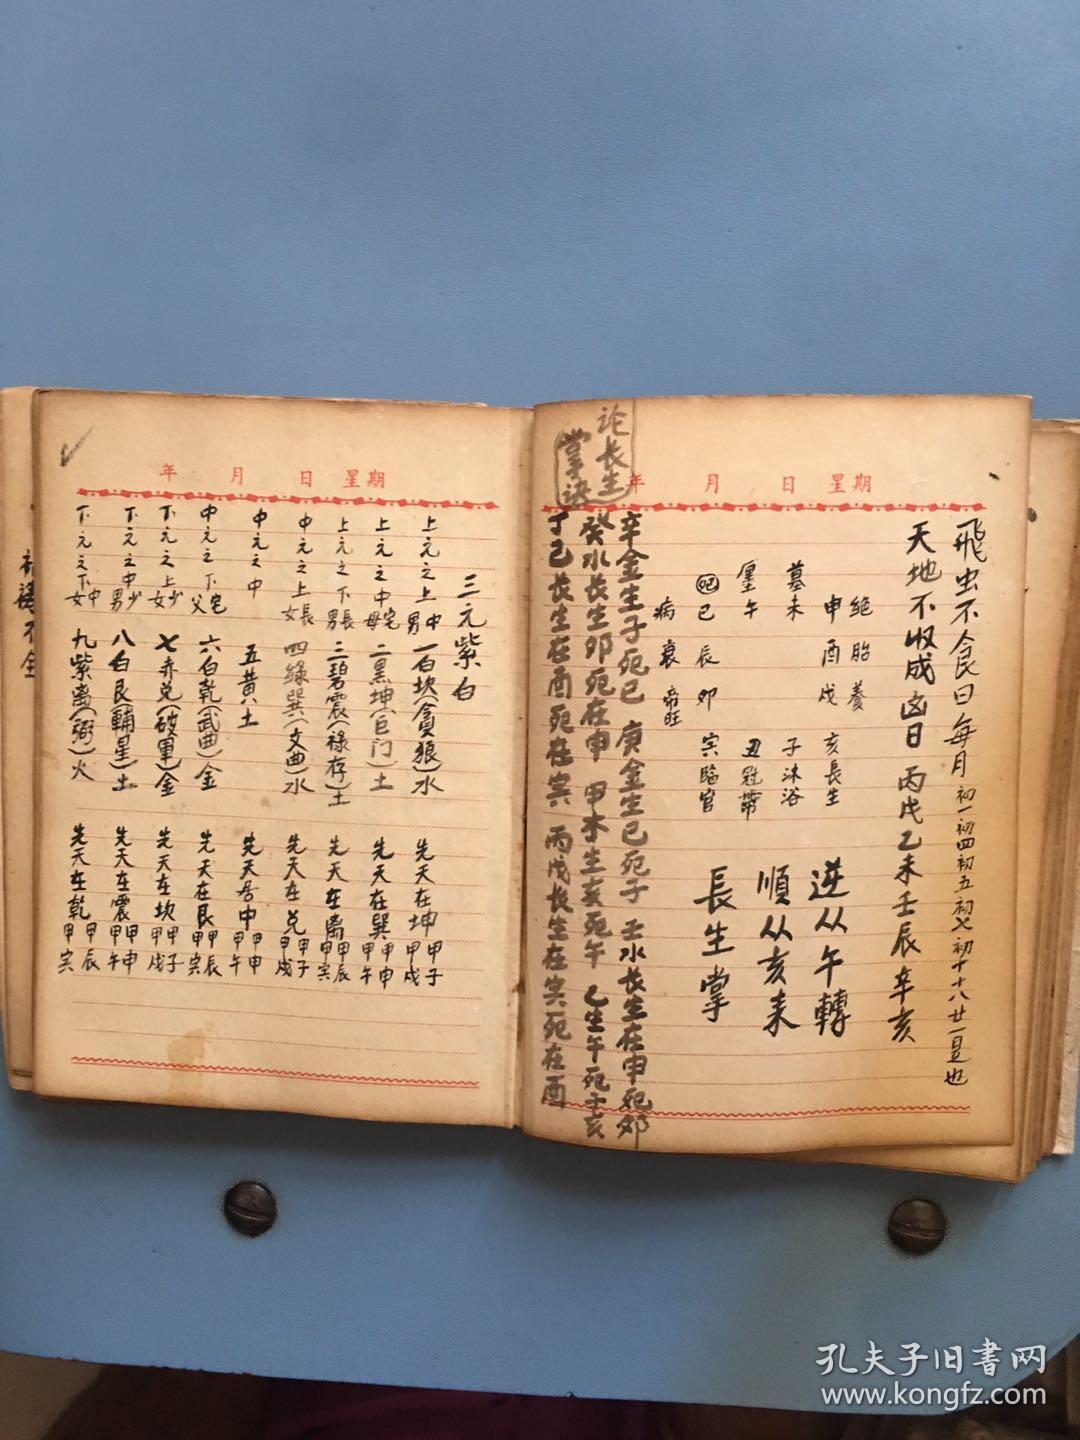 年 月 日 星期
飛虫不食日每月初一初四初五初七初十十八廿一是也
天地不收成凶日丙戊乙未壬辰辛亥
逆从午轉
順从亥来
長生掌
絕 胎 養
申 酉 戌 亥長生
墓未 子沐浴
午 丑冠帶
死巳 辰 卯 寅臨官
病 衰 帝旺
论长生
掌诀
辛金生子死巳 庚金生巳死子 壬水长生在申死卯
癸水长生卯死在申 甲木生亥死午 乙生午死于亥
丁己长生在酉死在寅 丙戊长生在寅死在酉
年 月 日 星期
三元紫白
上元之上中男 一白坎(貪狼)水 先天在坤 甲子甲戌
上元之中宅母 二黑坤(巨门)土 先天在巽 甲申甲午
上元之下長男 三碧震(禄存)土 先天在离 甲辰甲寅
中元之上長女 四綠巽(文曲)水 先天在兑 甲子甲戌
中元之中 五黄土 先天居中 甲申甲午
中元之下宅父 六白乾(武曲)金 先天在艮 甲辰甲寅
下元之上少女 七赤兑(破軍)金 先天在坎 甲子甲戌
下元之中少男 八白艮(輔星)土 先天在震 甲申甲午
下元之下中女 九紫离(弼)火 先天在乾 甲辰甲寅
孔夫子旧書网
www.kongfz.com